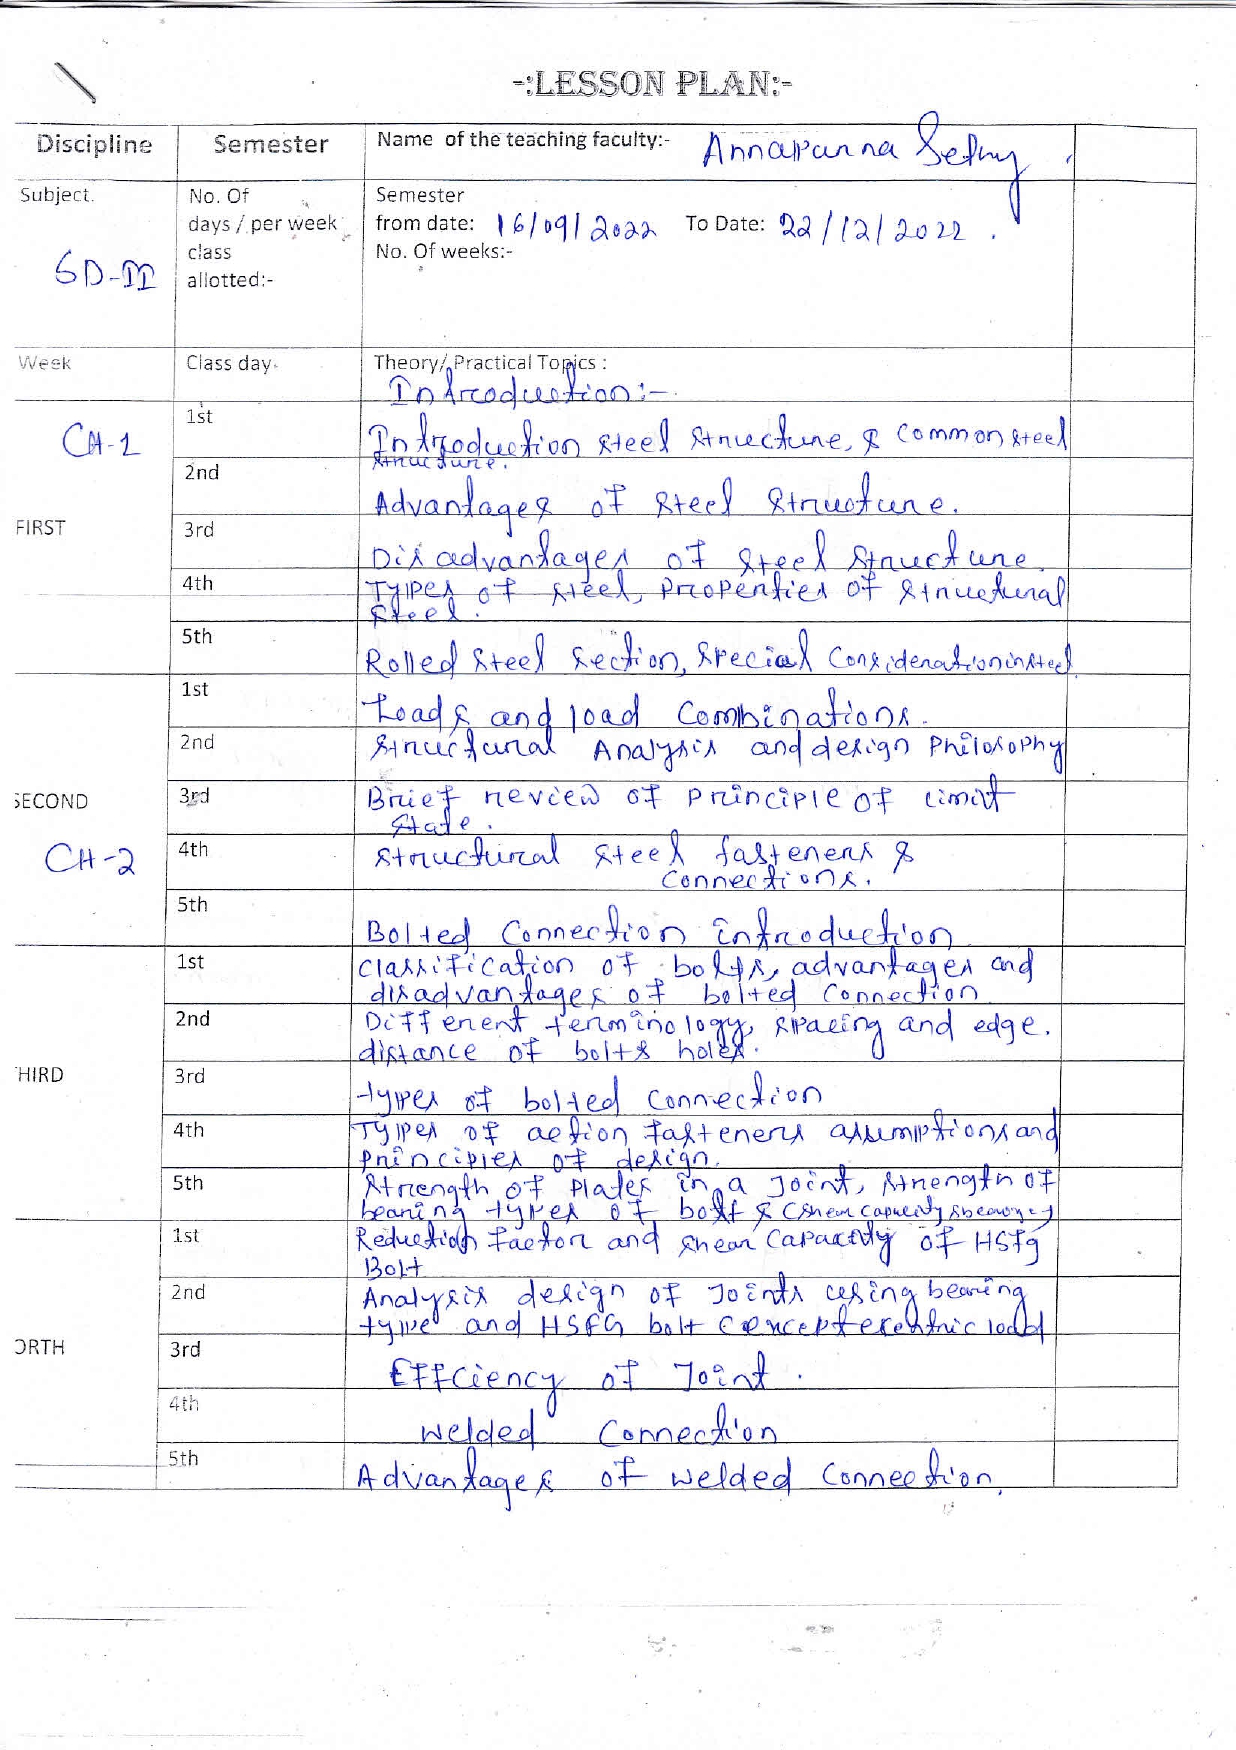 -:LESSON PLAN:-
Discipline Semester Name of the teaching faculty:- Annapurna Sethy
Subject. No. Of Semester
days / per week from date: 16/09/2022 To Date: 22/12/2022.
class No. Of weeks:-
SD-II allotted:-
Week Class day Theory/ Practical Topics :
Introduction:-
1st
CH-1 Introduction steel structure, & common steel
structure.
2nd
Advantages of steel structure.
FIRST 3rd
Disadvantages of steel structure.
4th Types of steel, Properties of structural
steel.
5th
Rolled steel section, special Consideration in steel
1st
Loads and load combinations.
2nd structural Analysis and design Philosophy
SECOND 3rd Brief review of principle of limit
state.
CH-2 4th structural steel fasteners &
connections.
5th
Bolted Connection introduction
1st classification of bolts, advantages and
disadvantages of bolted connection
2nd Different terminology, spacing and edge.
distance of bolts holes.
HIRD 3rd
types of bolted connection
4th Types of action fasteners assumptions and
principles of design.
5th strength of plates in a joint, strength of
bearing types of bolt & (shear capacity &
1st Reduction factor and shear capacity of HSfg
Bolt
2nd Analysis design of joints using bearing
type and HSFG bolt concept load
ORTH 3rd
Effciency of Joint.
4th
Welded Connection
5th
Advantages of welded connection.